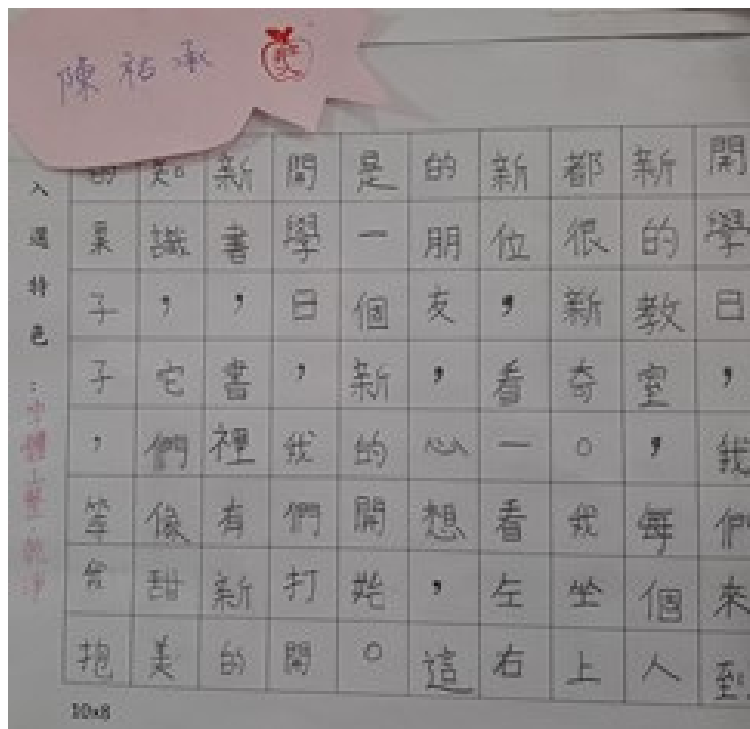 陳祐承
開學日，我們來到
新的教室，每個人
都很新奇。我坐上
新位，看一看左右
的朋友，心想，這
是一個新的開始。
開學日，我們打開
新書，書裡有新的
知識，它們像甜美
的果子子，等台抱
入選特色：字體工整、乾淨
10x8